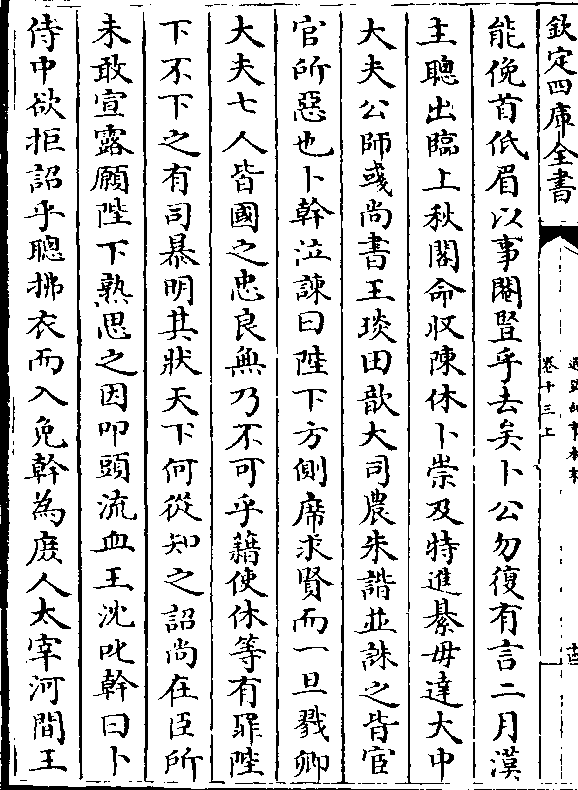 欽定四庫全書
卷十三上
能俛首低眉以事閹豎乎去矣卜公勿復有言二月漢
主聰出臨上秋閣命收陳休卜崇及特進綦毋達大中
大夫公師彧尚書王琰田歆大司農朱諧並誅之皆宦
官所惡也卜幹泣諫曰陛下方側席求賢而一旦戮卿
大夫七人皆國之忠良無乃不可乎藉使休等有罪陛
下不下之有司暴明其狀天下何從知之詔尚在臣所
未敢宣露願陛下熟思之因叩頭流血王沈叱幹曰卜
侍中欲拒詔乎聰拂衣而入免幹為庶人太宰河間王